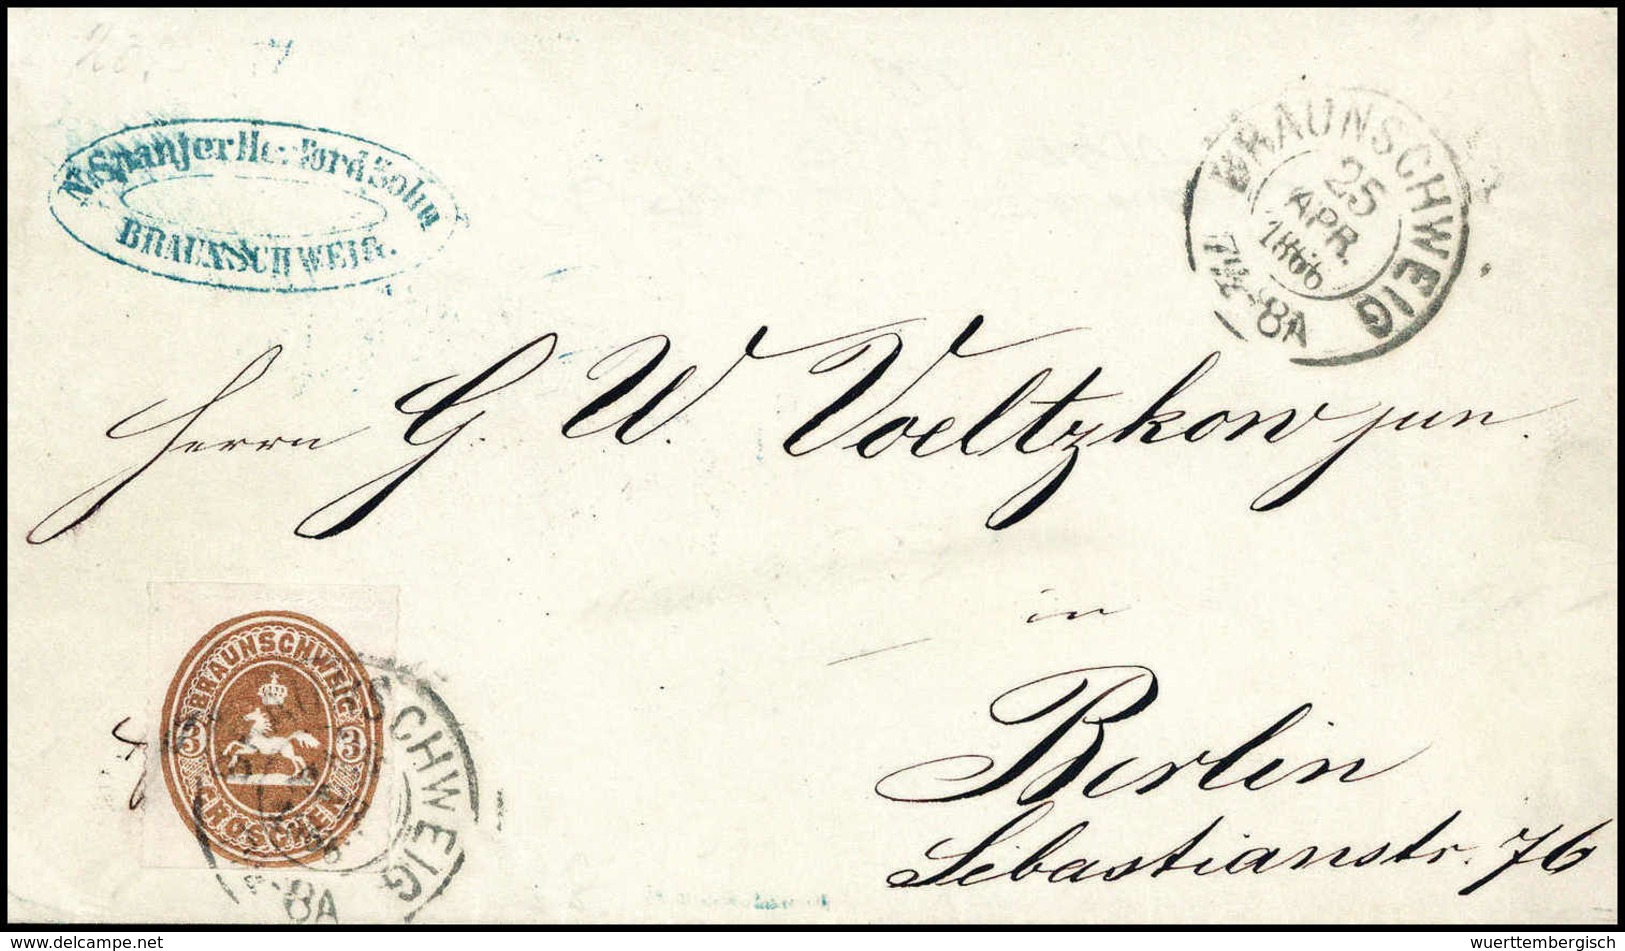 N. Spanjer Herford Sohn
BRAUNSCHWEIG.
BRAUNSCHWEIG
25
APR.
1866
7½-8A
Herrn G. W. Voeltzkow jun.
in
Berlin
Sebastianstr. 76
BRAUNSCHWEIG
3 3
GROSCHEN
BRAUNSCHWEIG
-8A
© www.delcampe.net
wuerttembergisch